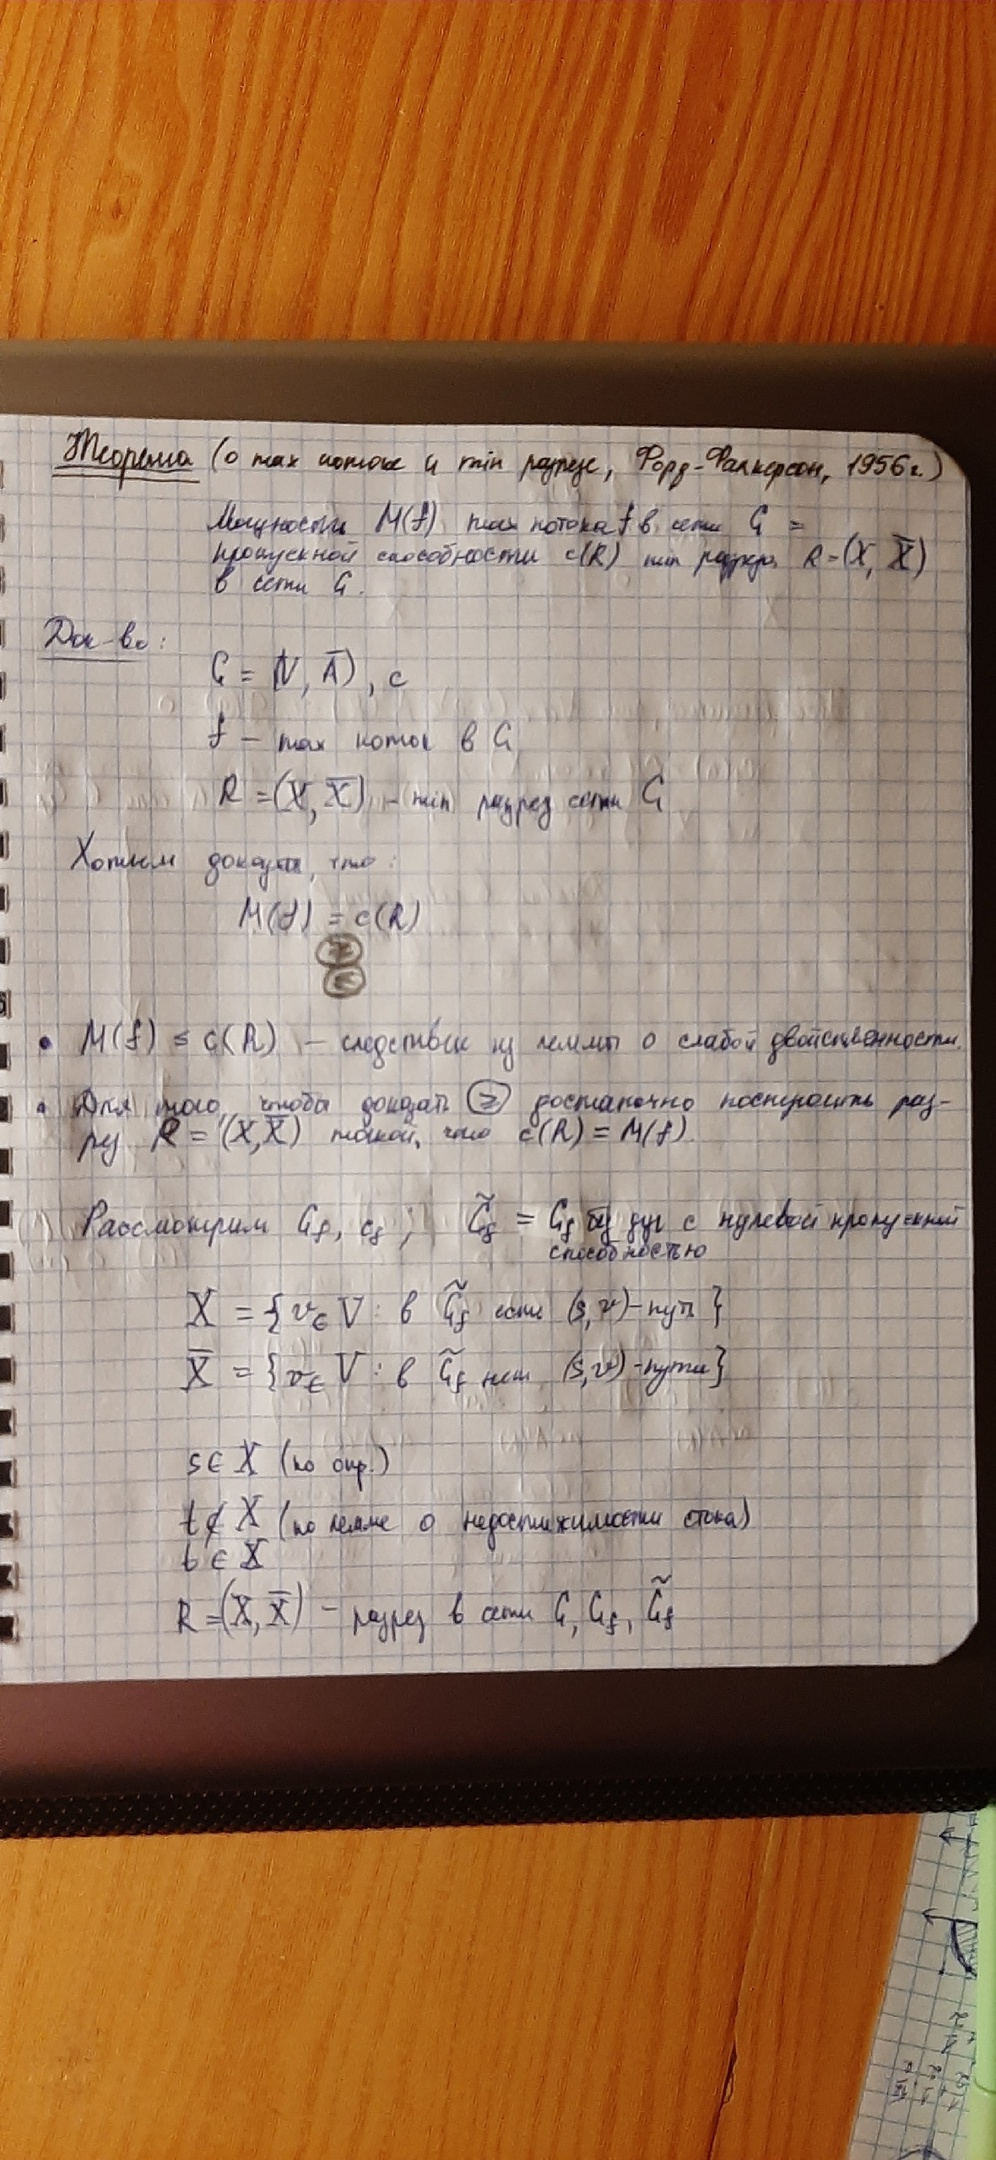 Теорема (о max потоке и min разрезе, Форд-Фалкерсон, 1956г.)
Мощность M(f) max потока f в сети G =
пропускной способности c(R) min разреза R=(X, X̅)
в сети G.
Док-во:
G = (V, A̅), c
f – max поток в G
R = (X, X̅) – min разрез сети G
Хотим доказать, что:
M(f) = c(R)
≥
≤
• M(f) ≤ c(R) – следствие из леммы о слабой двойственности.
• Для того, чтобы доказать ≥ достаточно построить раз-
рез R = (X, X̅) такой, что c(R) = M(f).
Рассмотрим G_f, c_f ; G̃_f = G_f без дуг с нулевой пропускной
способностью
X = {v ∈ V : в G̃_f есть (s,v)-путь}
X̅ = {v ∈ V : в G̃_f нет (s,v)-пути}
s ∈ X (по опр.)
t ∉ X (по лемме о недостижимости стока)
t ∈ X̅
R = (X, X̅) – разрез в сети G, G_f, G̃_f